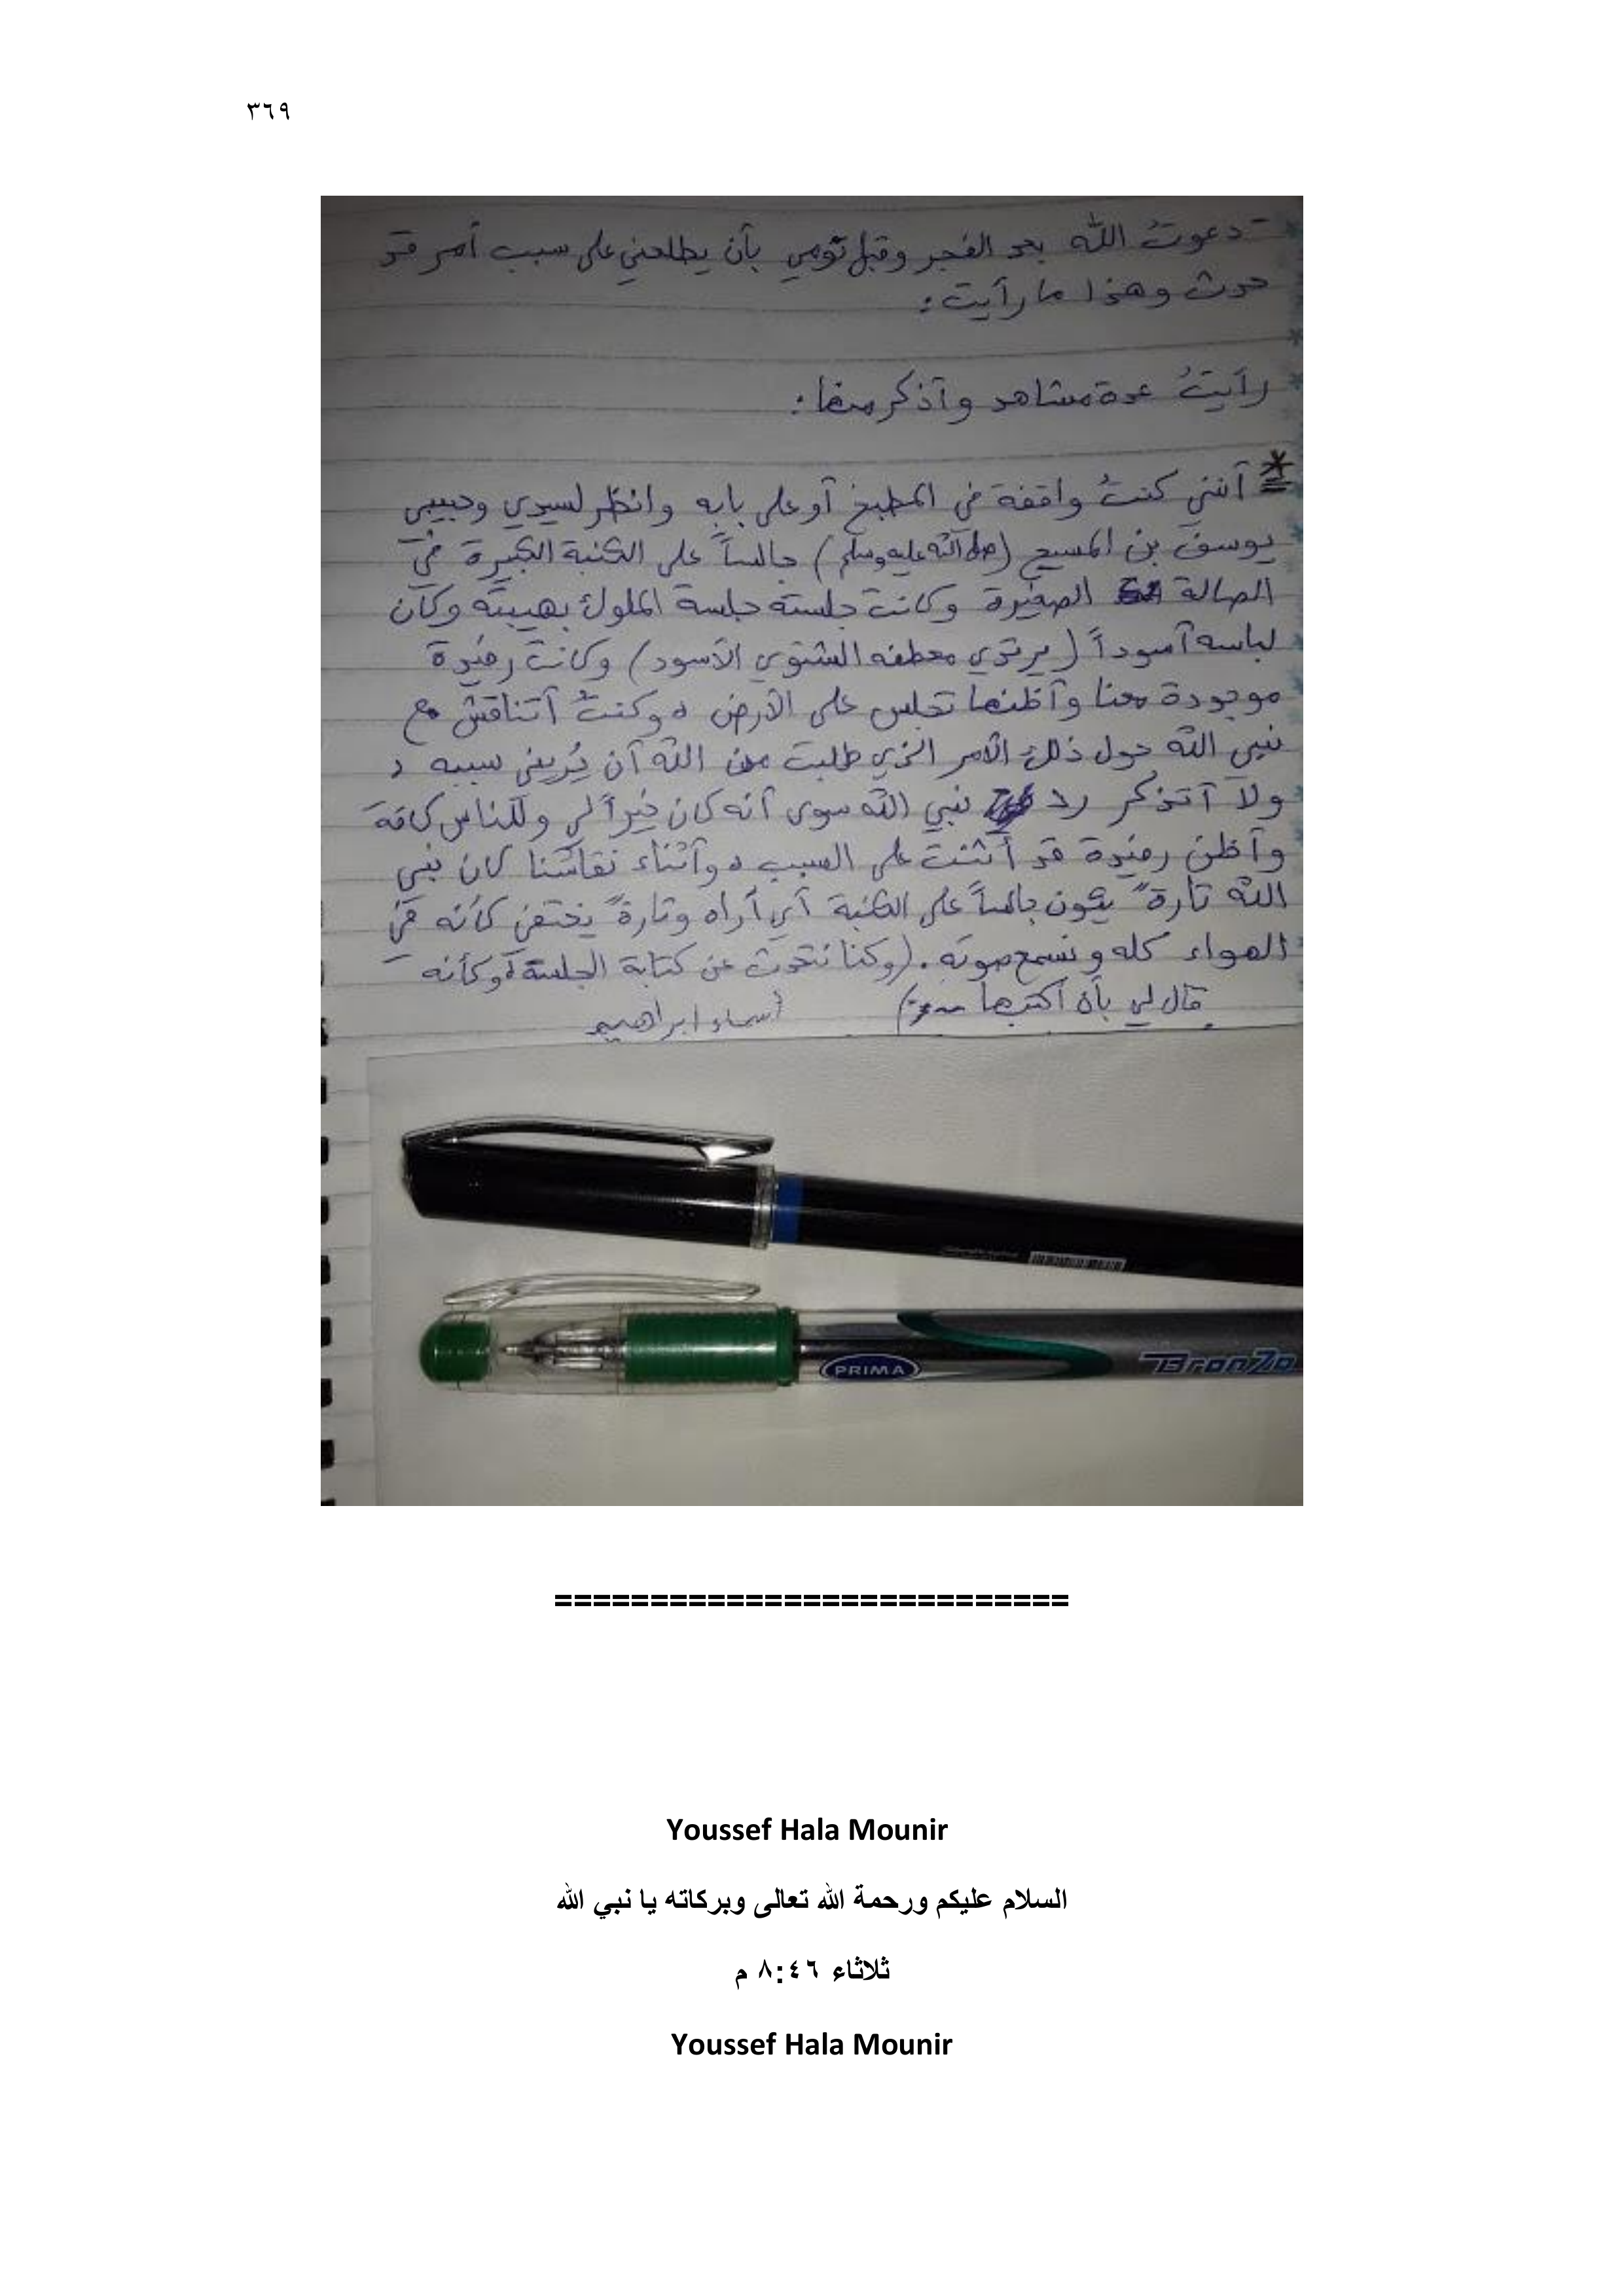 ٣٦٩
- دعوتُ الله بعد الفجر وقبل نومي بأن يطلعني على سبب أمر قد
حدث وهذا ما رأيت :
رأيتُ عدة مشاهد وأذكر منها :
* أنني كنتُ واقفة في المطبخ أو على بابه وانظر لسيدي وحبيبي
يوسف بن المسيح (صلى الله عليه وسلم) جالساً على الكنبة الكبيرة في
الصالة الصغيرة وكانت جلسته جلسة الملوك بهيبته وكان
لباسه أسوداً (يرتدي معطفه الشتوي الأسود) وكانت رفيدة
موجودة معنا وأظنها تجلس على الأرض، وكنتُ أتناقش مع
نبي الله حول ذلك الأمر الذي طلبت من الله أن يُريني سببه ،
ولا أتذكر رد نبي الله سوى أنه كان خيراً لي وللناس كافة
وأظن رفيدة قد أثنت على السبب، وأثناء نقاشنا كان نبي
الله تارةً يكون جالساً على الكنبة أي أراه وتارةً يختفي كأنه في
الهواء كله ونسمع صوته . (وكنا نتحدث عن كتابة الجلسة، وكأنه
قال لي بأن أكتبها )
أسماء ابراهيم
PRIMA
BronZo
===========================
Youssef Hala Mounir
السلام عليكم ورحمة الله تعالى وبركاته يا نبي الله
ثلاثاء ٨:٤٦ م
Youssef Hala Mounir